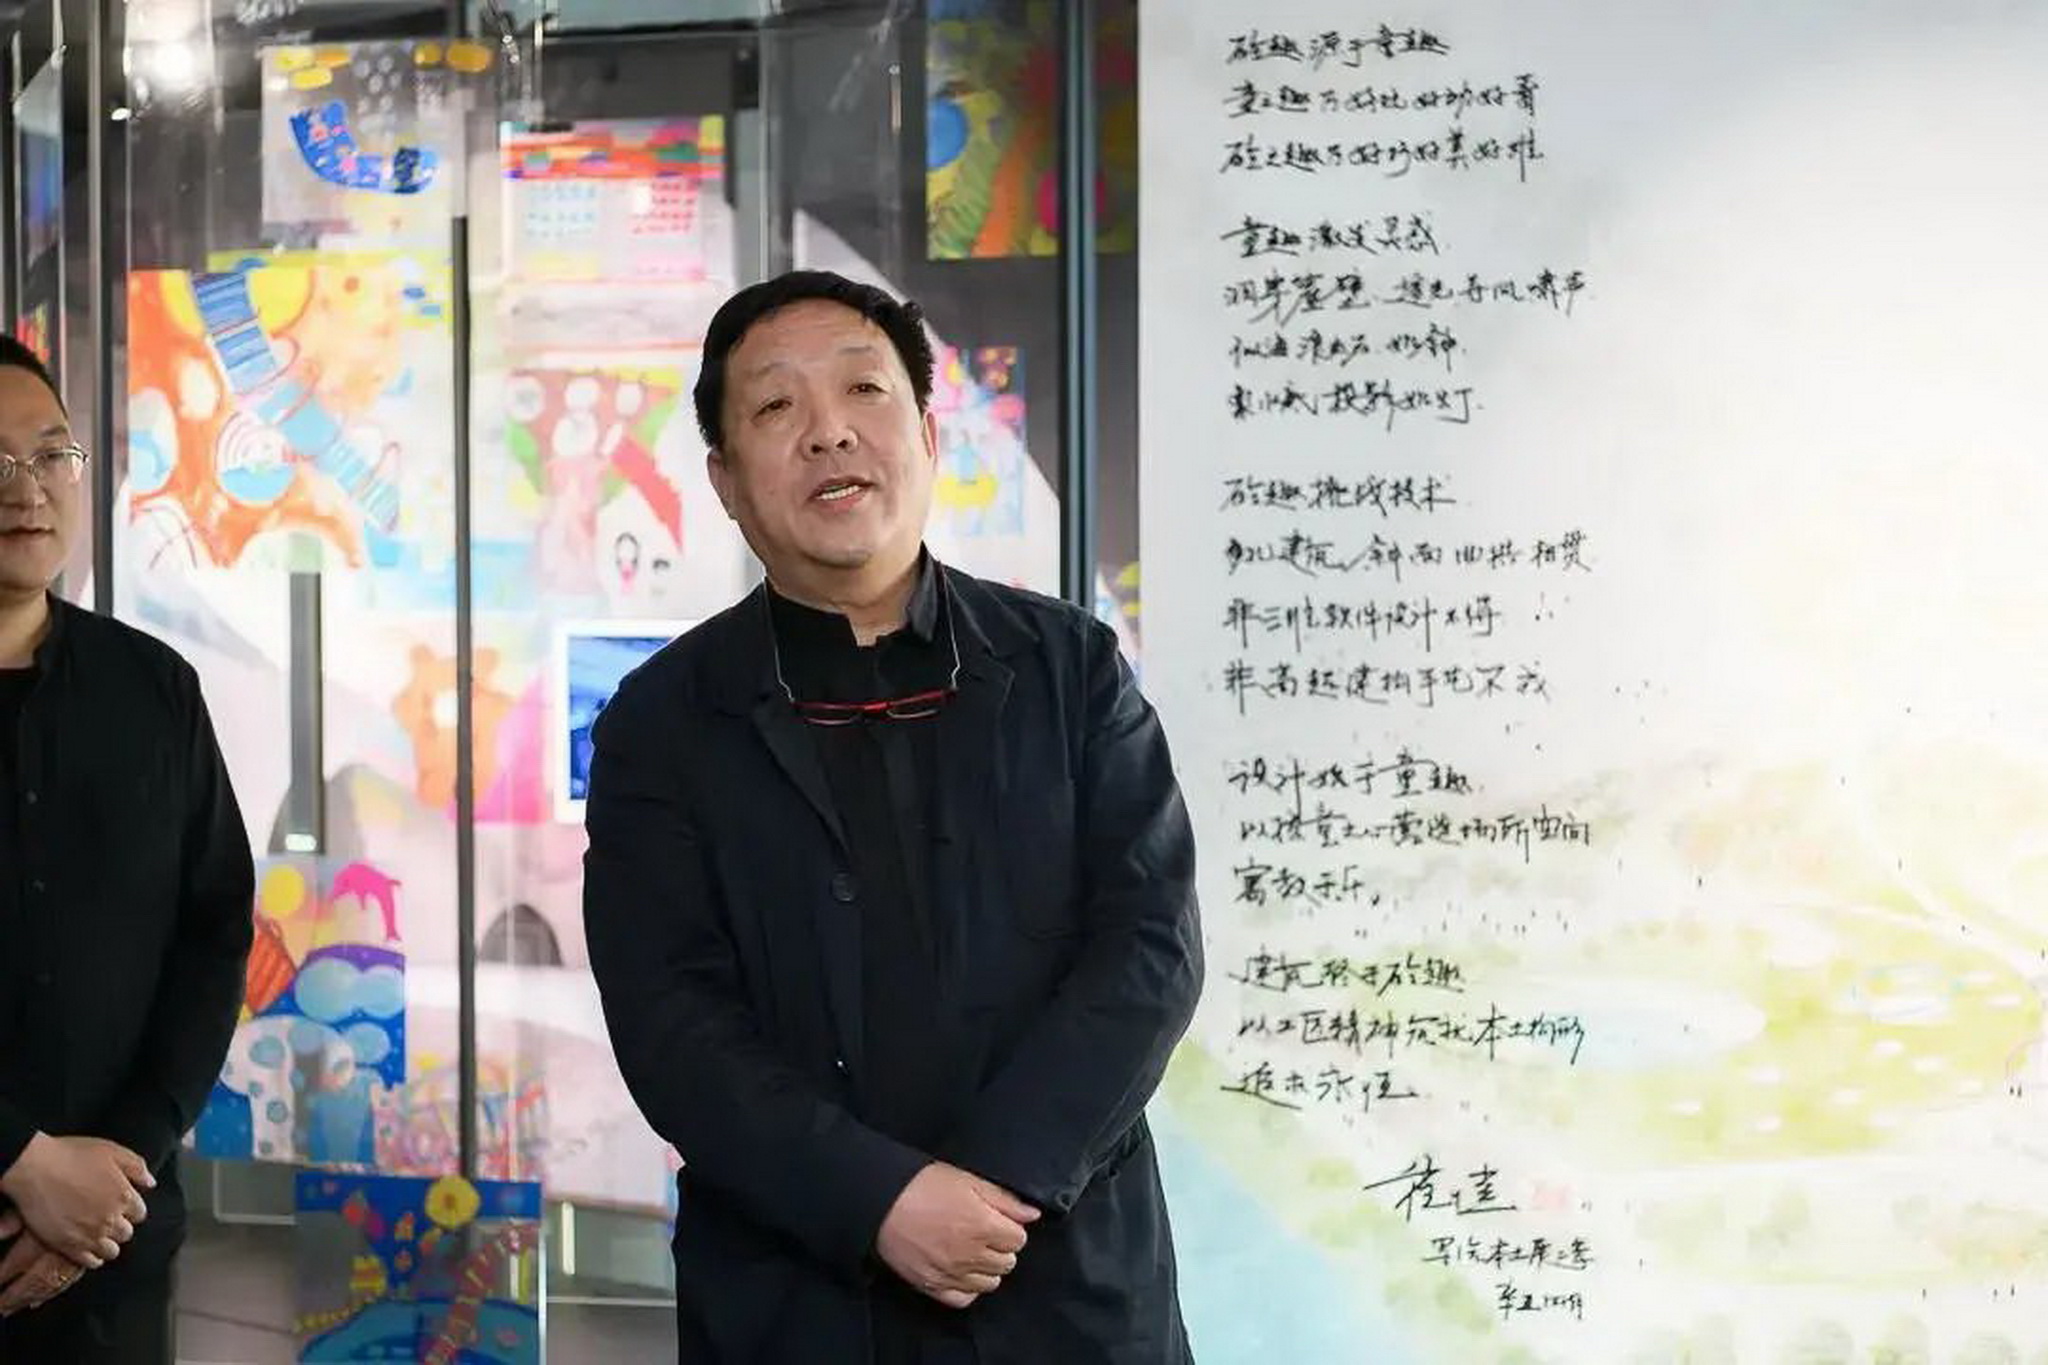 砼趣源于童趣
童之趣乃好玩好动好奇
砼之趣乃好巧好美好难
童趣激发灵感
洞穿崖壁、透光导风啸声
似海浪如石、如钟
投影如灯
砼趣挑战技术
建筑、斜面曲拱相贯
非三维软件设计不得
非高超建构手艺不成
设计始于童趣
以孩童之心营造场所空间
寓教于乐
建筑终于砼趣
以工匠精神 本土物形
追求永恒
崔愷